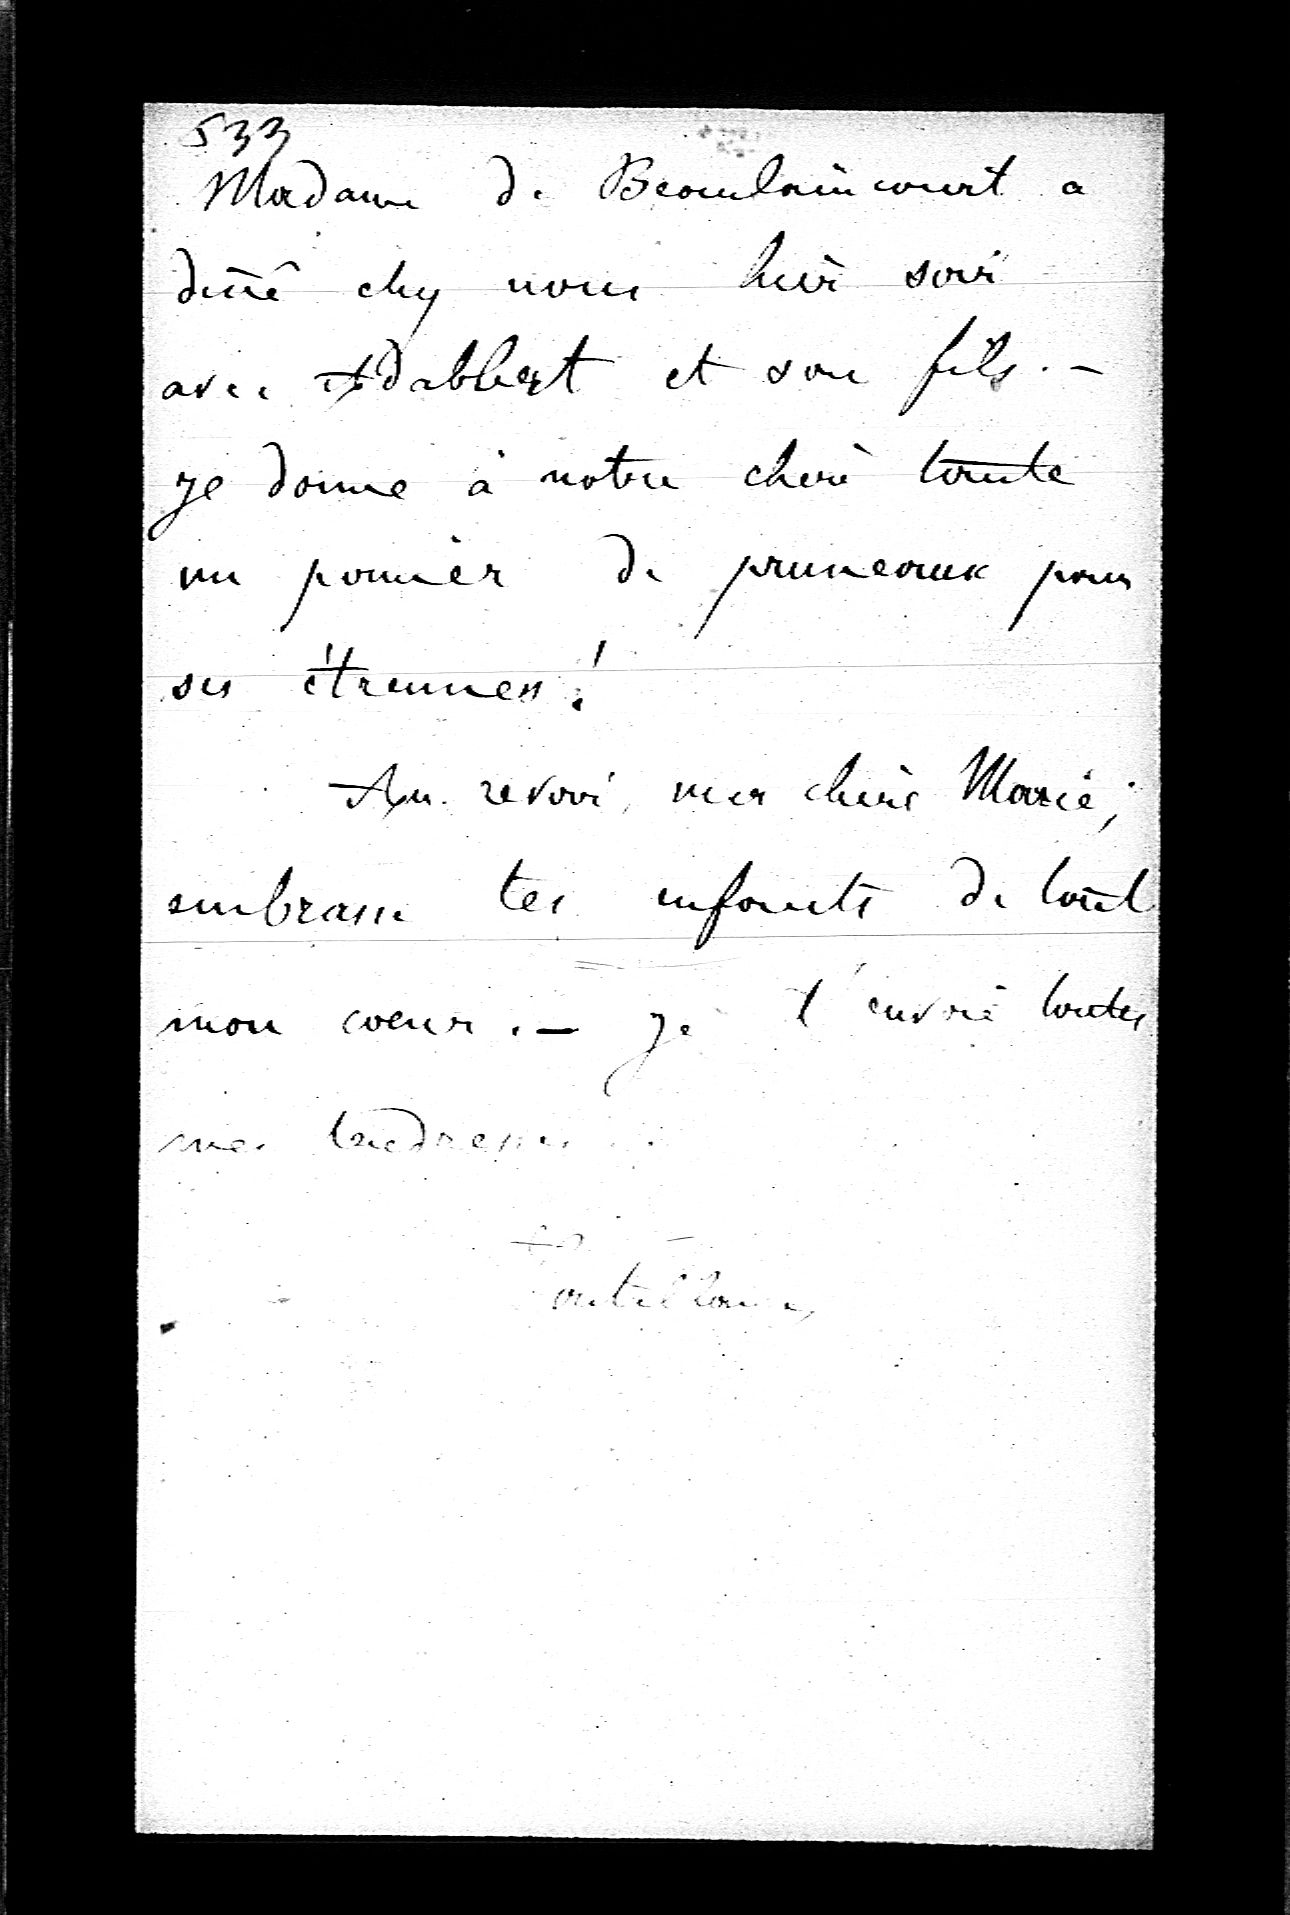 533
Madame de Beaulaincourt a
diné chez nous hier soir
avec Adalbert et son fils. –
je donne à notre chère tante
un panier de pruneaux pour
ses étrennes!
Au revoir, ma chère Marie;
embrasse tes enfants de tout
mon coeur. – je t'envoie toutes
mes tendresses